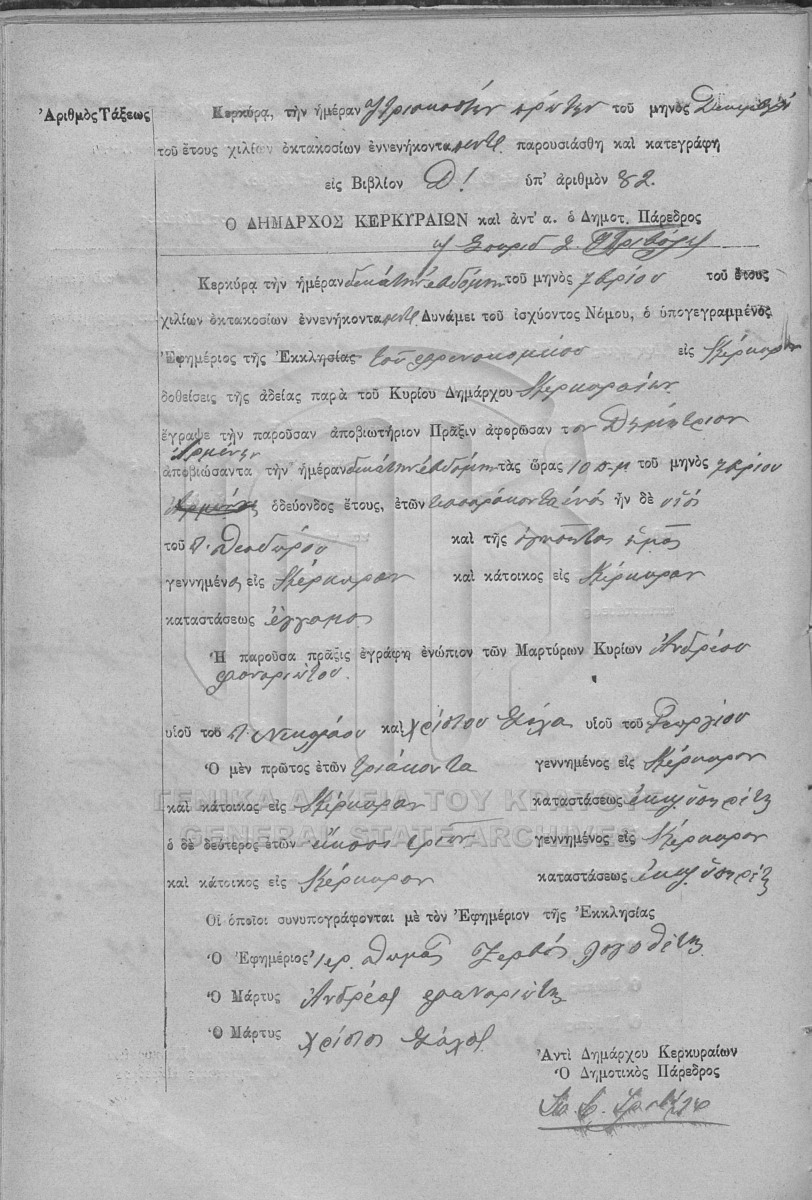 Ἀριθμὸς Τάξεως
Κερκύρα, τὴν ἡμέραν τριακοστὴν πρώτην τοῦ μηνὸς Δεκεμβρίου
τοῦ ἔτους χιλίων ὀκτακοσίων ἐννενήκοντα πέντε παρουσιάσθη καὶ κατεγράφη
εἰς Βιβλίον Δ! ὑπ' ἀριθμὸν 82.
Ο ΔΗΜΑΡΧΟΣ ΚΕΡΚΥΡΑΙΩΝ καὶ ἀντ' α. ὁ Δημοτ. Πάρεδρος
Σπυρίδ
Κερκύρᾳ τὴν ἡμέραν δεκάτην ἑβδόμην τοῦ μηνὸς 7βρίου τοῦ ἔτους
χιλίων ὀκτακοσίων ἐννενήκοντα πέντε Δυνάμει τοῦ ἰσχύοντος Νόμου, ὁ ὑπογεγραμμένος
Ἐφημέριος τῆς Ἐκκλησίας τοῦ φρενοκομείου εἰς Κέρκυραν
δοθείσεις τῆς ἀδείας παρὰ τοῦ Κυρίου Δημάρχου Κερκυραίων
ἔγραψε τὴν παροῦσαν ἀποβιωτήριον Πρᾶξιν ἀφορῶσαν τον Δημήτριον
Ἀρμένην
ἀποβιώσαντα τὴν ἡμέραν δεκάτην ἑβδόμην τὰς ὥρας 10 π.μ τοῦ μηνὸς 7βρίου
ὁδεύοντος ἔτους, ἐτῶν τεσσαράκοντα ἑνός ἦν δὲ υἱός
τοῦ π. Θεοδώρου καὶ τῆς ἀγνώστου ἡμᾶς
γεννημένος εἰς Κέρκυραν καὶ κάτοικος εἰς Κέρκυραν
καταστάσεως ἔγγαμος
Ἡ παροῦσα πρᾶξις ἐγράφη ἐνώπιον τῶν Μαρτύρων Κυρίων Ἀνδρέου
φαναριώτου.
υἱοῦ τοῦ π. Νικολάου καὶ Χρίστου υἱοῦ τοῦ Γεωργίου
Ὁ μὲν πρῶτος ἐτῶν τριάκοντα γεννημένος εἰς Κέρκυραν
καὶ κάτοικος εἰς Κέρκυραν καταστάσεως
ὁ δὲ δεύτερος ἐτῶν εἴκοσι τριῶν γεννημένος εἰς Κέρκυραν
καὶ κάτοικος εἰς Κέρκυραν καταστάσεως
Οἱ ὁποῖοι συνυπογράφονται μὲ τὸν Ἐφημέριον τῆς Ἐκκλησίας
Ὁ Ἐφημέριος ἱερ. Θωμᾶς Ζερβός λογοθέτης
Ὁ Μάρτυς Ἀνδρέας φαναριώτης
Ὁ Μάρτυς Χρίστος
Ἀντὶ Δημάρχου Κερκυραίων
Ὁ Δημοτικὸς Πάρεδρος
ΓΕΝΙΚΑ ΑΡΧΕΙΑ ΤΟΥ ΚΡΑΤΟΥΣ
GENERAL STATE ARCHIVES